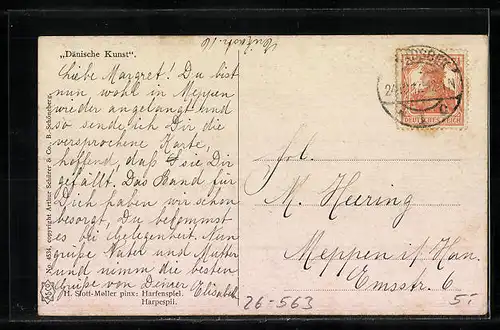 „Dänische Kunst“.
Liebe Margret! Du bist
nun wohl in Meppen
wieder angelangt und
so sende ich Dir die
versprochene Karte,
hoffend, daß sie Dir
gefällt. Das Band für
Dich haben wir schon
besorgt, Du bekommst
es bei Gelegenheit. Nun
grüße Vater und Mutter
und nimm die besten
Grüße von Deiner Elisabeth
H. Slott-Møller pinx: Harfenspiel.
Harpespil.
No. 4534, copyright Arthur Schürer & Co., B.-Schöneberg.
DEUTSCHES REICH
C
M. Heering
Meppen i/ Han.
Emsstr. 6
26-563
5.